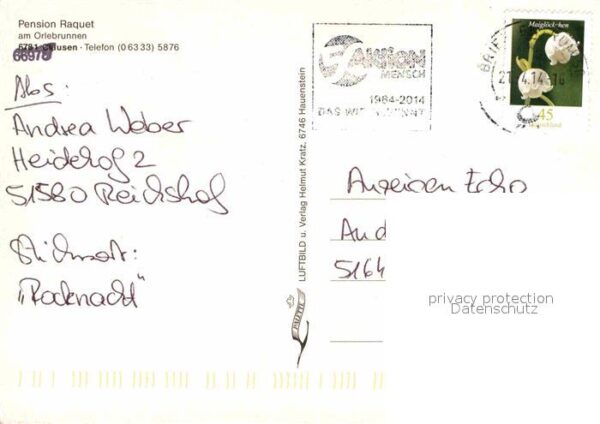 Pension Raquet
am Orlebrunnen
Clausen · Telefon (0 63 33) 5876
66978
Abs:
Andrea Weber
Heidehof 2
51580 Reichshof
Stichwort:
„Rocknacht"
LUFTBILD u. Verlag Helmut Kratz, 6746 Hauenstein
AKTION
MENSCH
1964-2014
DAS WIR GEWINNT
BRIEF
Maiglöckchen
45
Deutschland
Anzeigen Echo
And
5164
privacy protection
Datenschutz